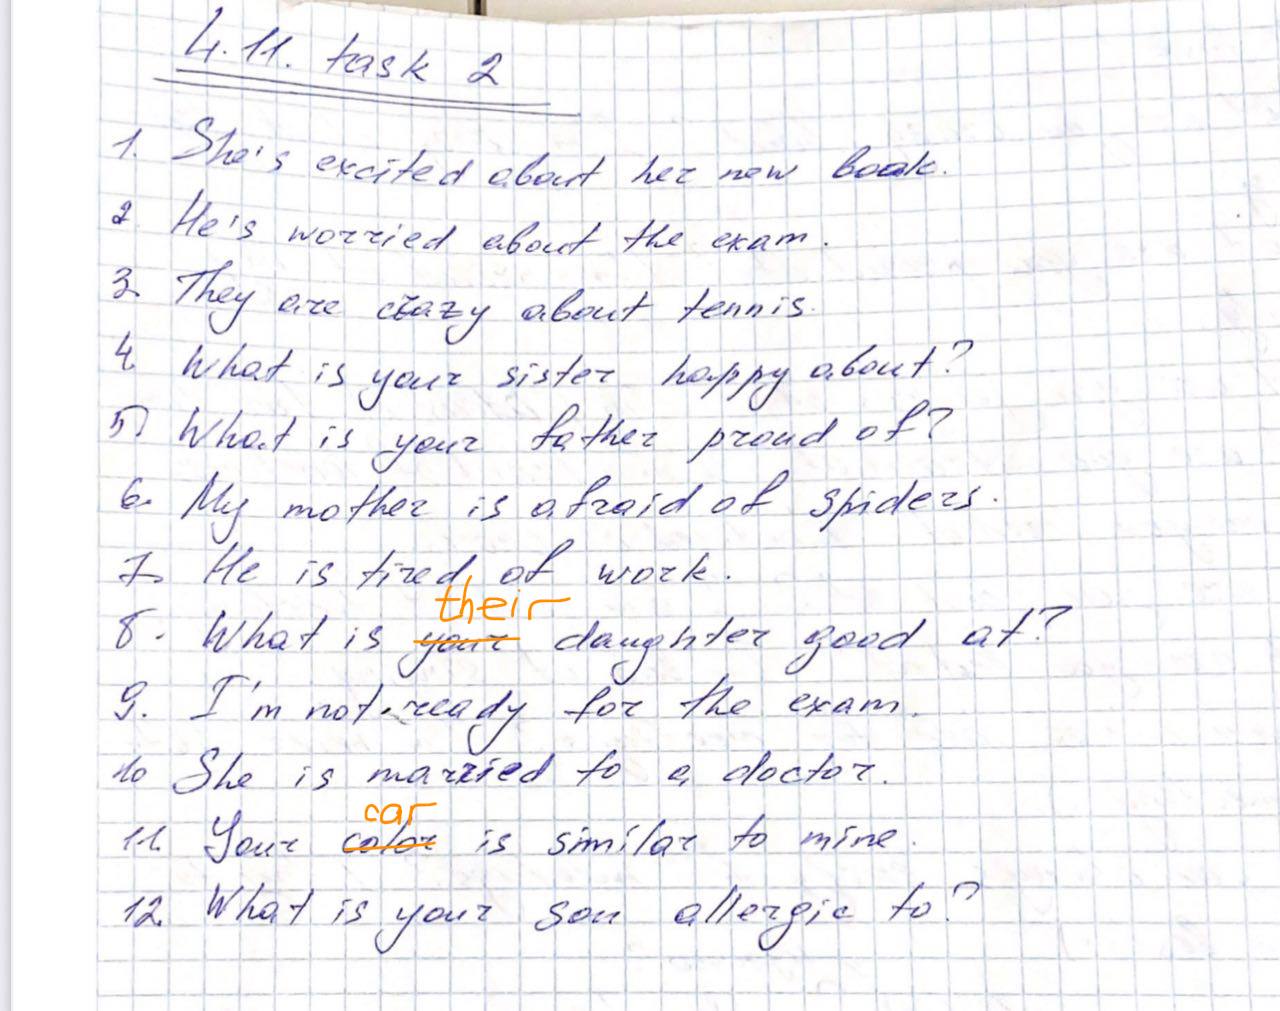 4.11. task 2
1. She's excited about her new book.
2. He's worried about the exam.
3. They are crazy about tennis.
4. What is your sister happy about?
5) What is your father proud of?
6. My mother is afraid of spiders.
7. He is tired of work.
their
8. What is your daughter good at?
9. I'm not ready for the exam.
10 She is married to a doctor.
car
11. Your color is similar to mine.
12. What is your son allergic to?